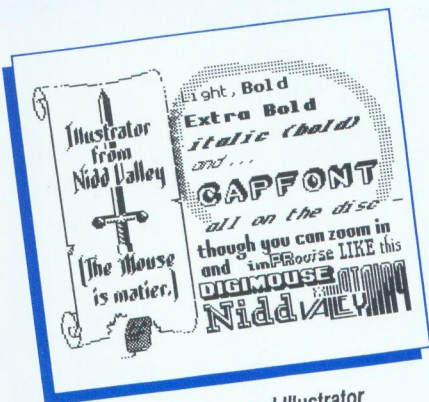 Illustrator
from
Nidd Valley
(The Mouse
is matier.)
Light, Bold
Extra Bold
italic (bold)
and...
CAPFONT
all on the disc -
though you can zoom in
and imPRovise LIKE this
DIGIMOUSE
Nidd VALLEY
Illustrator